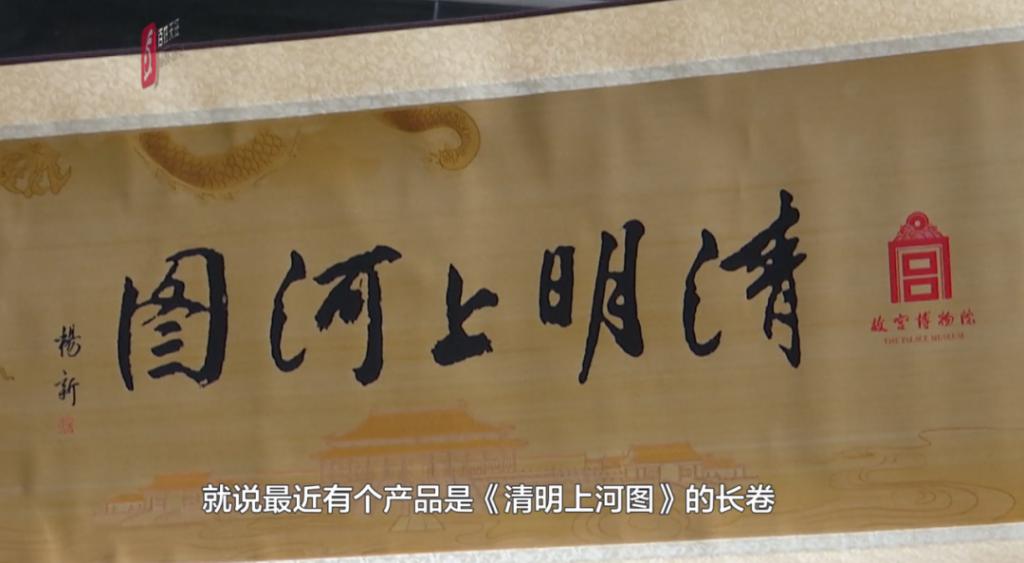 清明上河图
故宫博物院
THE PALACE MUSEUM
楊新
就说最近有个产品是《清明上河图》的长卷